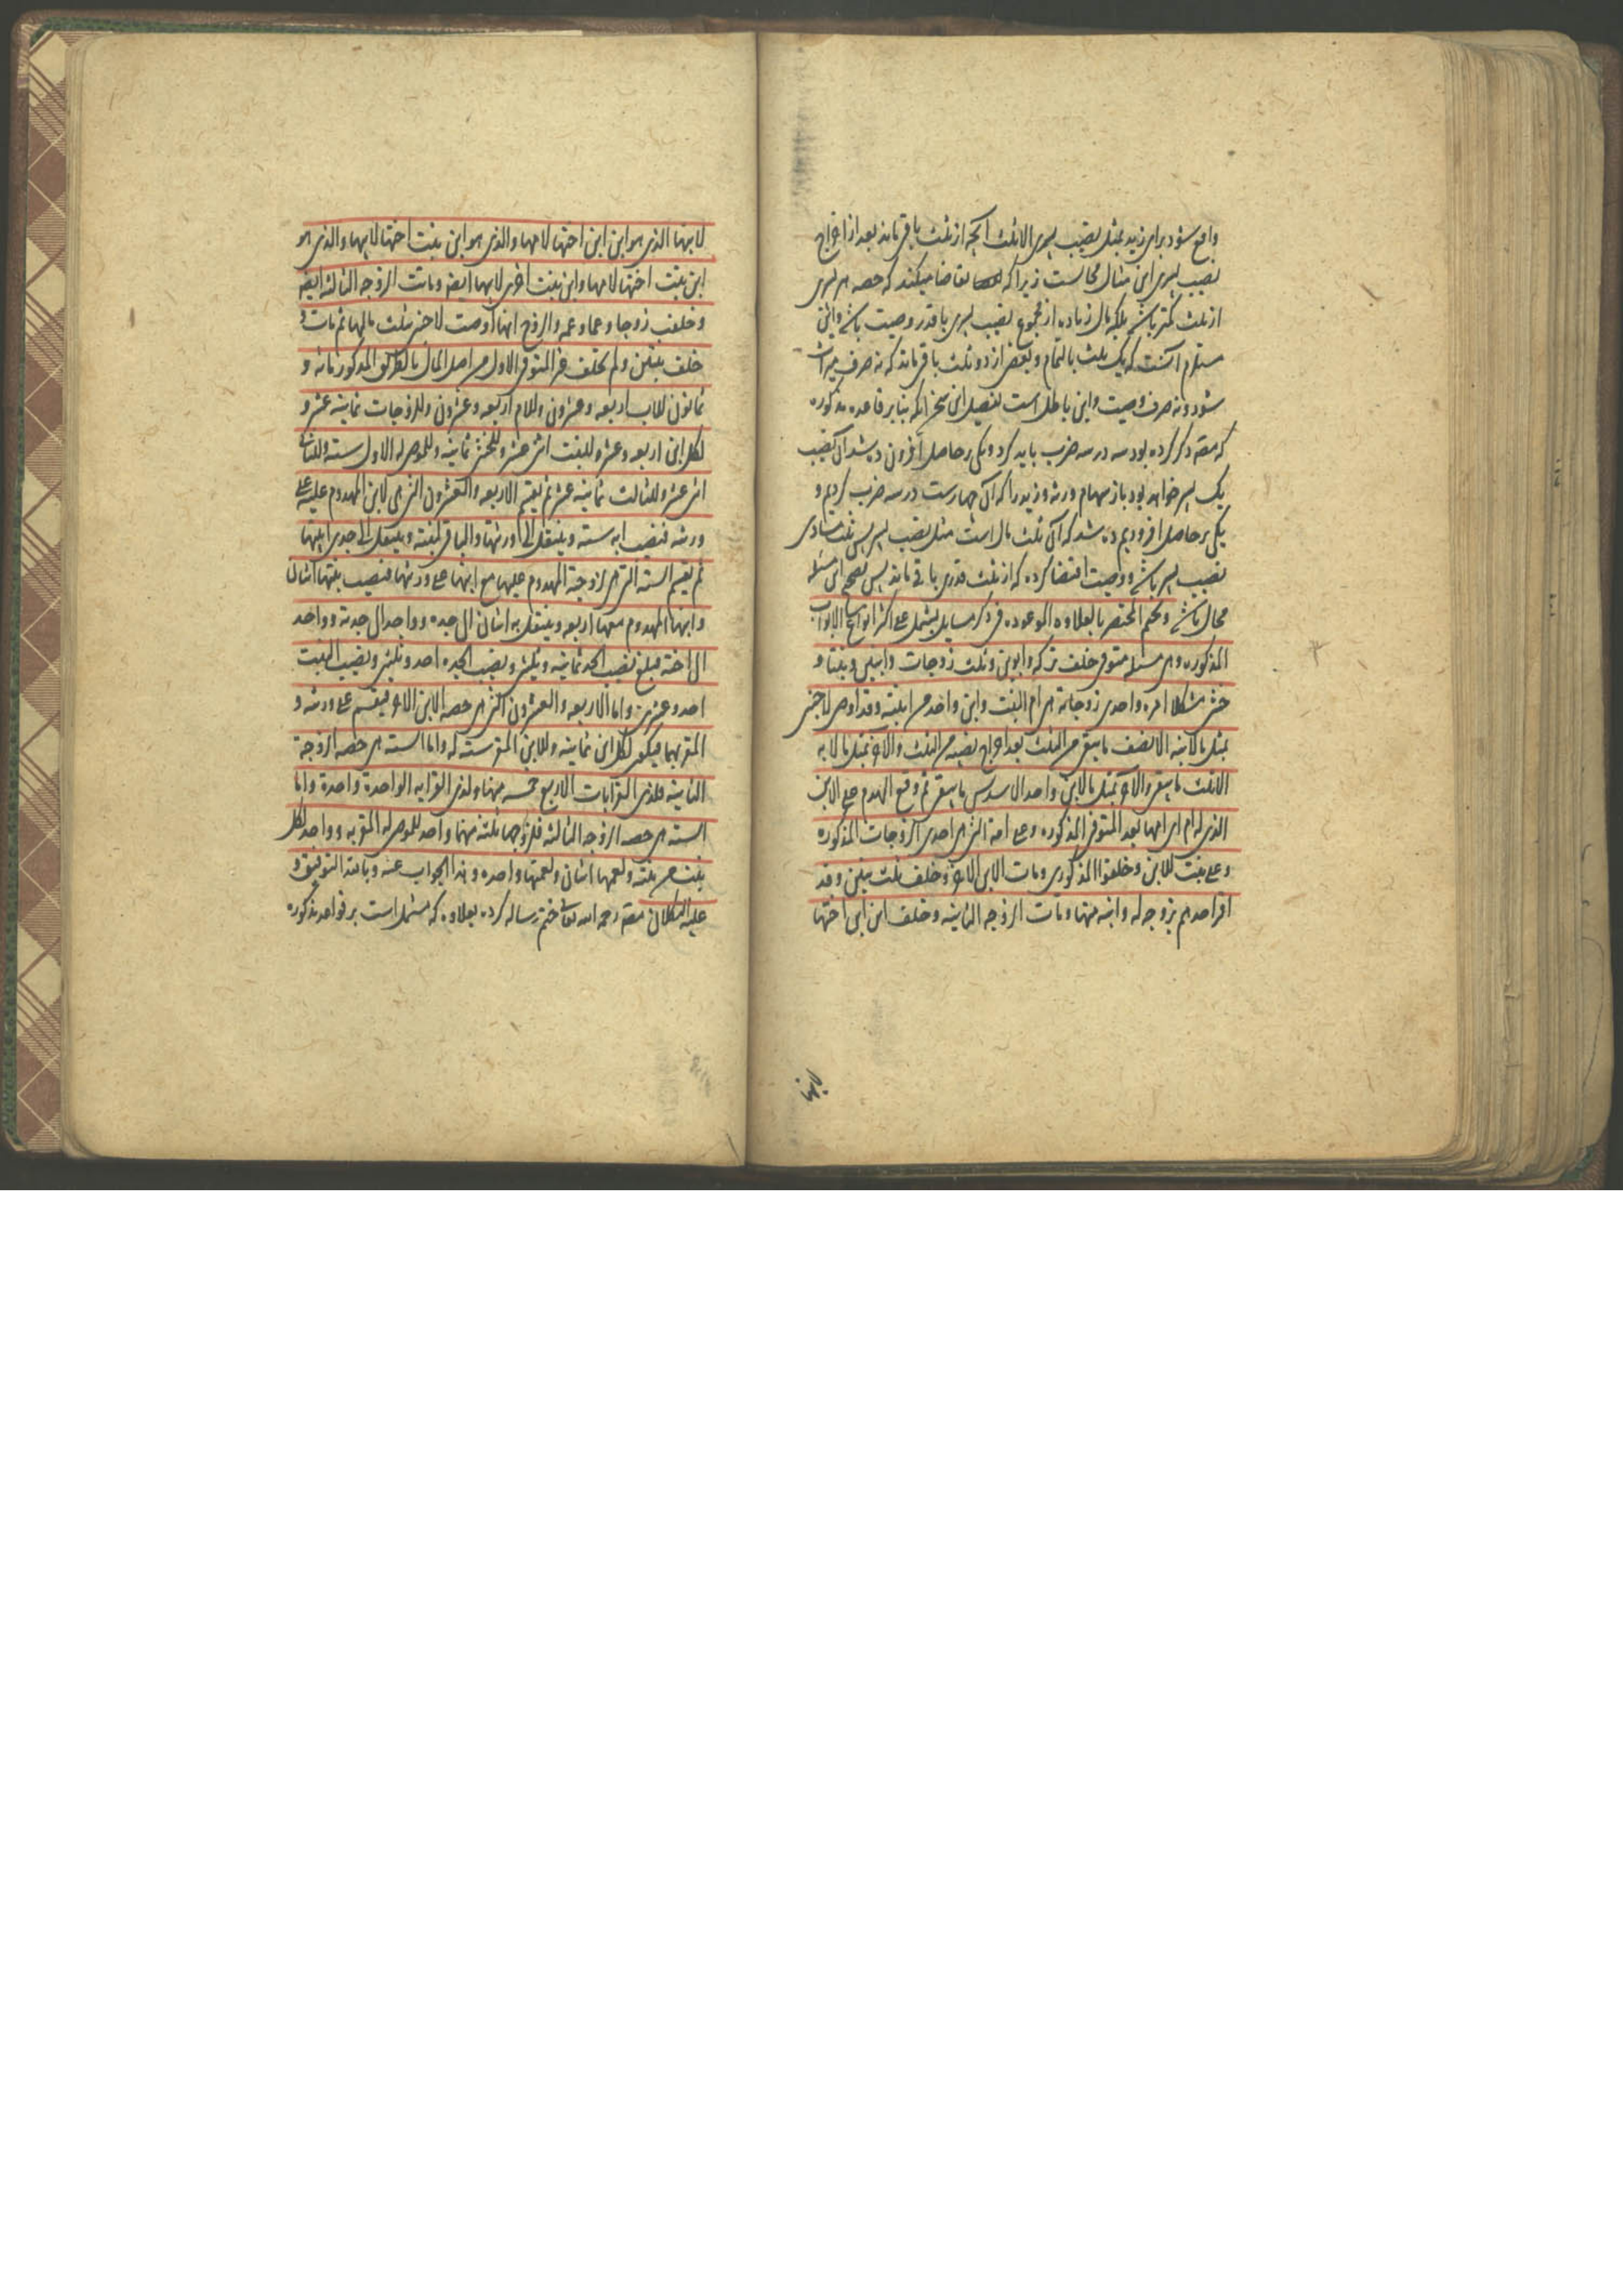 واقع شود برای زید بمثل نصیب پسری الا ثلث آنچه از ثلث باقی ماند بعد از اخراج
نصیب پسری این مثال محالست زیرا که تقاضا میکند که حصه هر پسری
از ثلث کمتر باشد بلکه مال زیاده از مجموع نصیب پسری با قدر وصیت باشد و این
مستلزم آنست که یک ثلث بالتمام و بعض از دو ثلث باقی ماند که نه صرف میراث
شود و نه صرف وصیت و این باطل است تفصیل این سخن آنکه بنابر قاعده مذکوره
که مصـ ذکر کرده بود سه در سه ضرب باید کرد و یکی بر حاصل افزون ده شد آن نصیب
یک پسر خواهد بود باز سهام ورثه و زید را که آن چهارست در سه ضرب کردیم و
یکی بر حاصل افزودیم شد که آن ثلث مال است مثل نصیب پسر پس ثلث مساوی
نصیب پسر باشد و وصیت اقتضا کرده که از ثلث قدری باقی ماند پس تصحیح این مسئله
محال باشد و نختم المختصر بالعلاوه الموعوده فی ذکر مسایل یشتمل علی اکثر انواع الابواب
المذکوره و هی مسئله متوفی خلف ترکه و ابوین و ثلث زوجات و ابنین و بنتا و
خنثی مشکلا امره واحدی زوجاته هی ام البنت و ابن واحد من ابنیه و قد اوصی لاجنبی
بمثل ما لابنه الا نصف ما یبقی من الثلث بعد اخراج نصیبه من الثلث و لآخر بمثل ما لابه
الا ثلث ما یبقی و لآخر بمثل ما لابن واحد الا سدس ما یبقی ثم وقع الهدم علی الابن
الذی له ام ای امها بعد المتوفی المذکوره و علی امه التی هی احدی الزوجات المذکوره
و علی بنت للابن و خلفوا المذکورین و مات الابن الآخر و خلف ثلث بنین و قد
اقر احدهم بزوجه له و ابنه منها و ماتت الزوجه الثانیه و خلف ابن ابن اختها
لابیها
لابیها الذی هو ابن ابن اختها لامها و الذی هو ابن بنت اختها لابیها و الذی هو
ابن بنت اختها لامها و ابن بنت اخری لابیها ایضا و ماتت الزوجه الثالثه ایضا
و خلفت زوجا و عما و عمه و الزوج انها اوصت لاجنبی بثلث مالها ثم مات و
خلف بنتین و لم یختلف فی المتوفی الاول من اصل المال بالطریق المذکور مائه و
ثمانون للاب اربعه و عشرون و للام اربعه و عشرون و للزوجات ثمانیه عشر و
لکل ابن اربعه و عشر و للبنت اثنی عشر و للخنثی ثمانیه و للموصی له الاول سته و للثانی
اثنی عشر و للثالث ثمانیه عشر ثم یقسم الاربعه و العشرون التی هی لابن المهدوم علیه علی
ورثه فنصیب ابه سته و ینتقل الی ورثتها و الباقی لبنته و ینتقل الی جدی ابنتها
ثم یقسم السته التی هی لزوجة المهدوم علیها مع ابنها علی ورثتها فنصیب بنتها اثنان
و ابنها المهدوم معها اربعه و ینتقل به اثنان الی جده و واحد الی جدته و واحد
الی اخته فبلغ نصیب الجد ثمانیه و ثلثین و نصیب الجده احد و ثلثین و نصیب البنت
احد و عشرین و اما الاربعه و العشرون التی هی حصه الابن الآخر فیقسم علی ورثه و
المقر بهما فیکون لکل ابن ثمانیه و للابن المقر سته له و اما السته هی حصه الزوجة
الثانیه فلذی القرابات الاربع خمسه منها و لذی القرابه الواحدة واحدة و اما
السته هی حصه الزوجه الثالثه فلزوجها ثلثه منها واحد للموصی له المقر به و واحد لکل
بنت من بنتیه و لعمها اثنان و لعمتها واحده و هذا الجواب عنه و بالله التوفیق و
علیه التکلان مصـ رحمه الله تعالی ختم رساله کرده بعلاوه که مشتمل است بر قواعد مذکوره